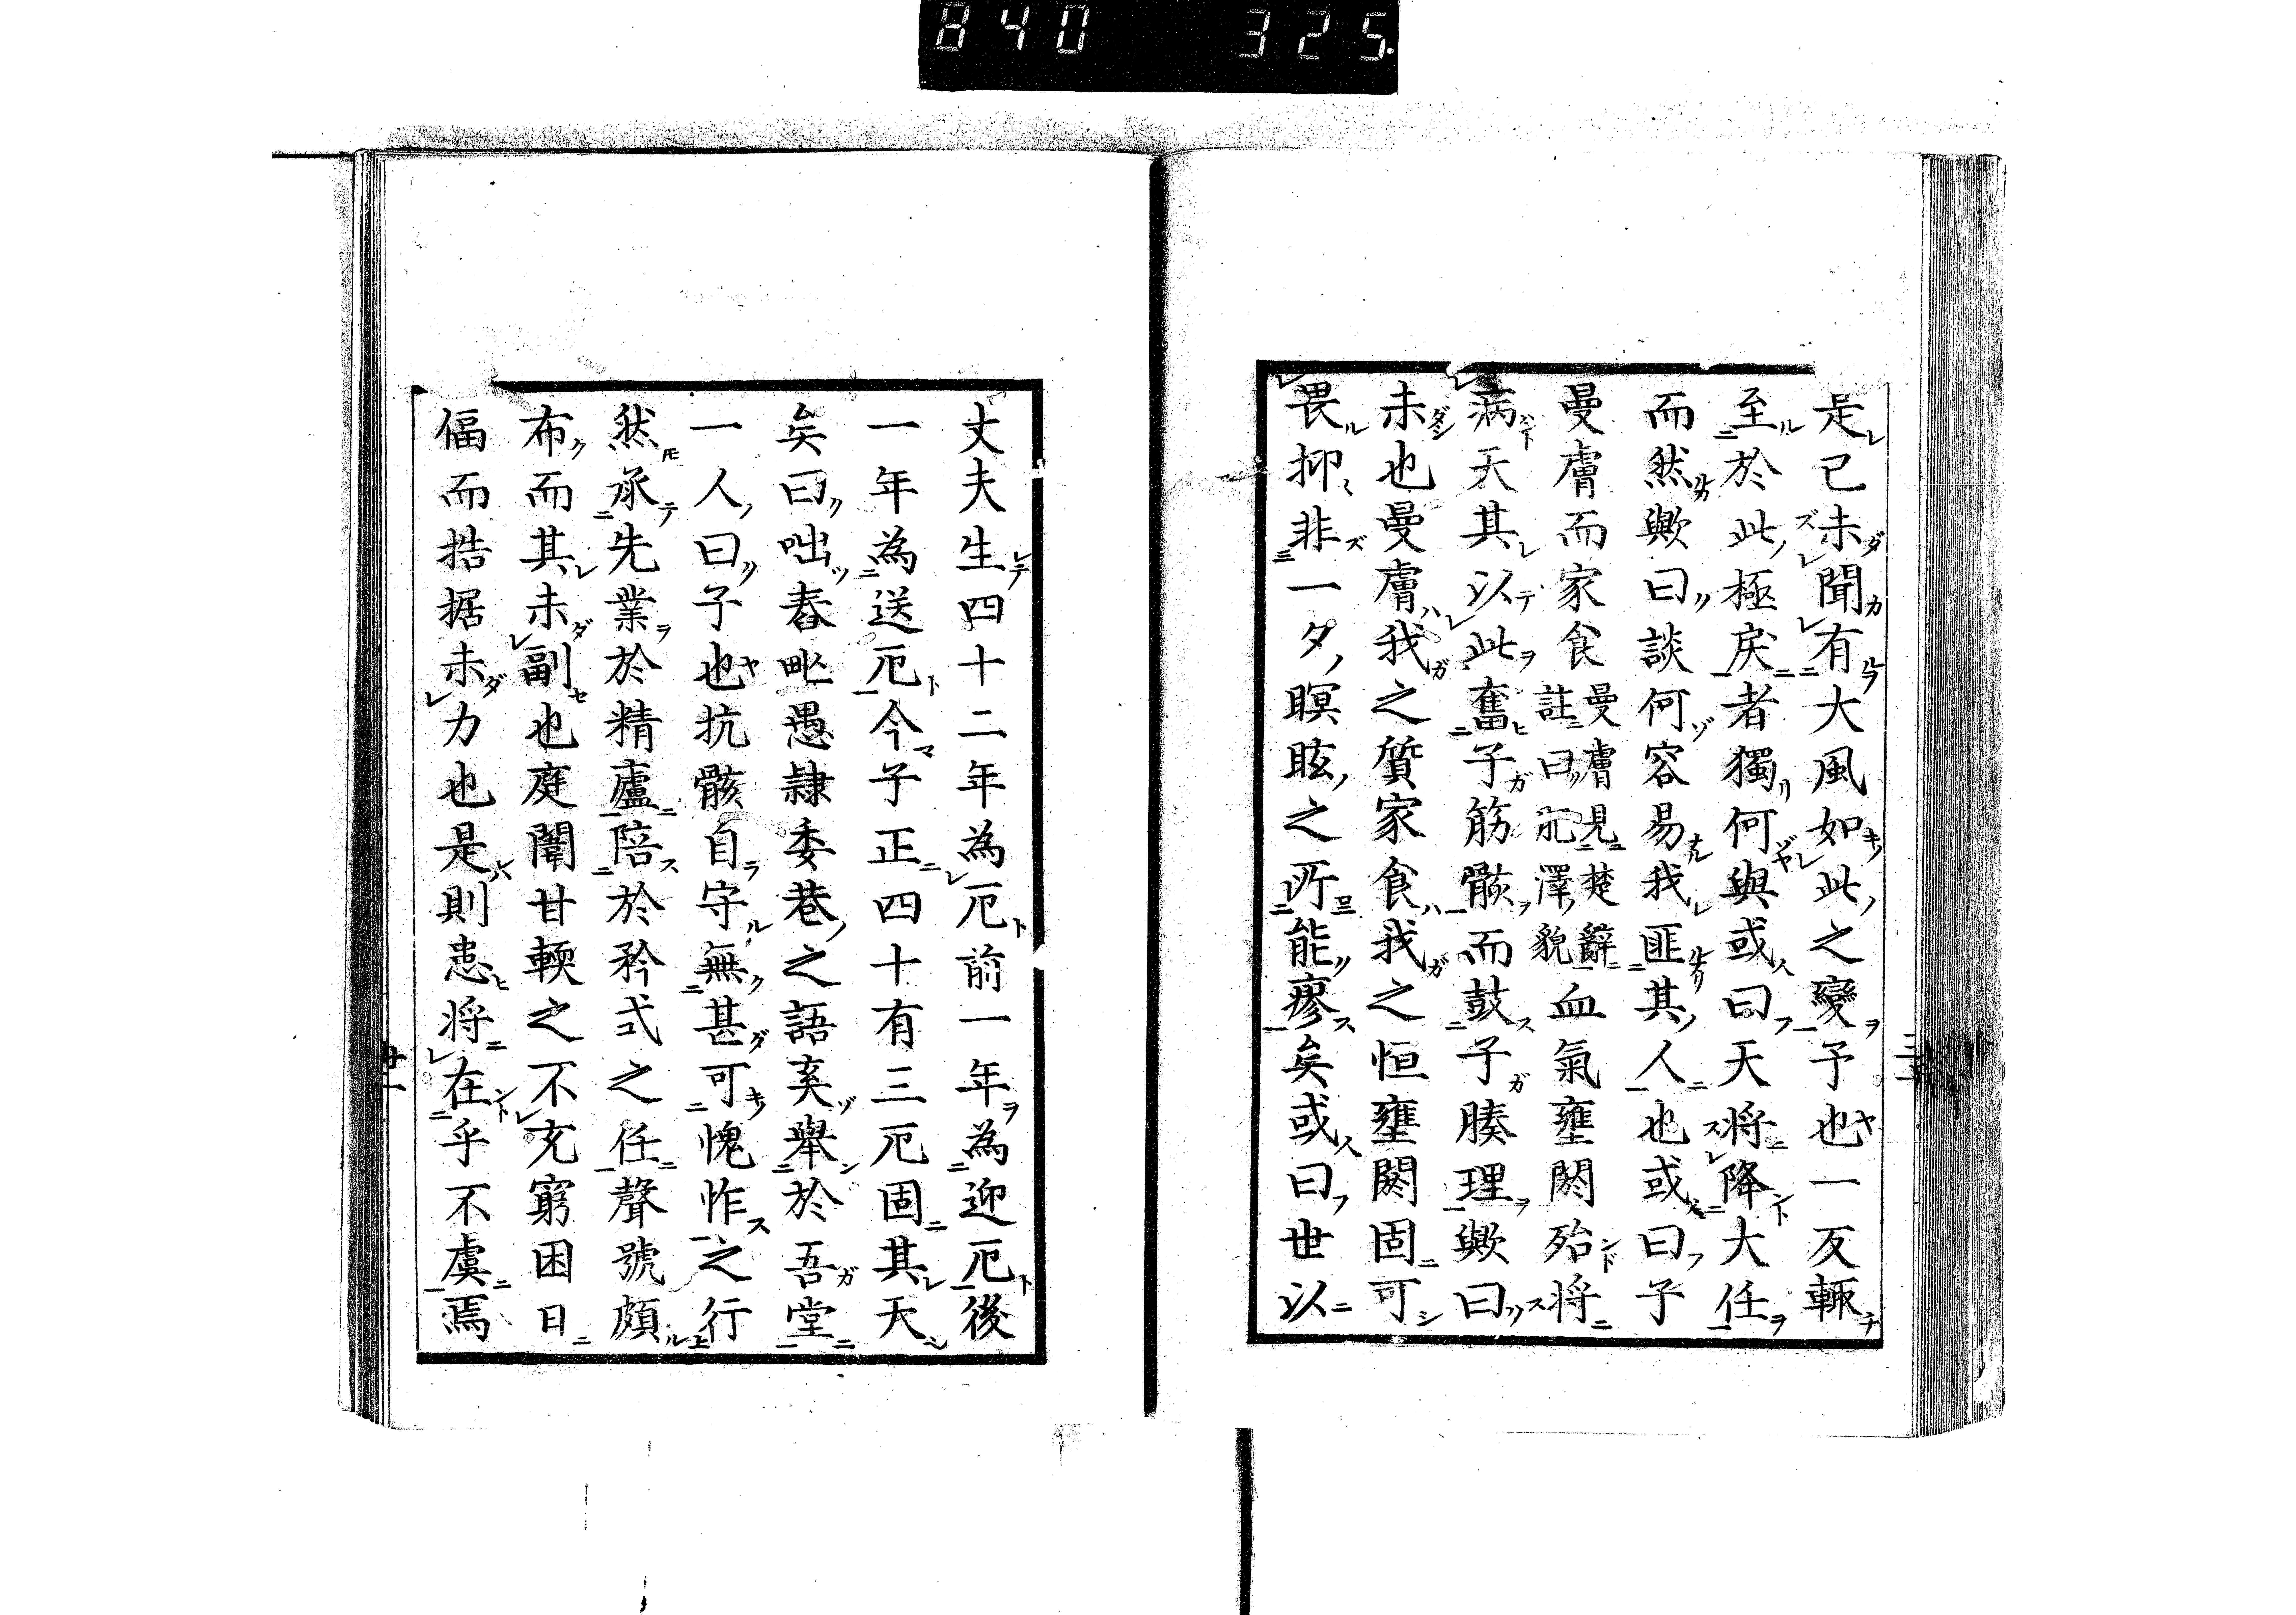 840 325
是已未聞有大風如此之變予也一反輙
至於此極戾者獨何與或曰天將降大任
而然歟曰談何容易我匪其人也或曰子
曼膚而家食曼膚見楚辭註曰肥澤貌血氣壅閼殆將
病天其以此奮子筋骸而鼓子腠理歟曰
未也曼膚我之質家食我之恒壅閼固可
畏抑非一夕瞑眩之所能瘳矣或曰世以
丈夫生四十二年為厄前一年為迎厄後
一年為送厄今子正四十有三厄固其天
矣曰咄舂甿愚隷委巷之語奚舉於吾堂
一人曰子也抗骸自守無甚可愧怍之行
然承先業於精廬陪於矜式之任聲號頗
布而其未副也庭闈甘輭之不充窮困日
偪而拮据未力也是則患將在乎不虞焉